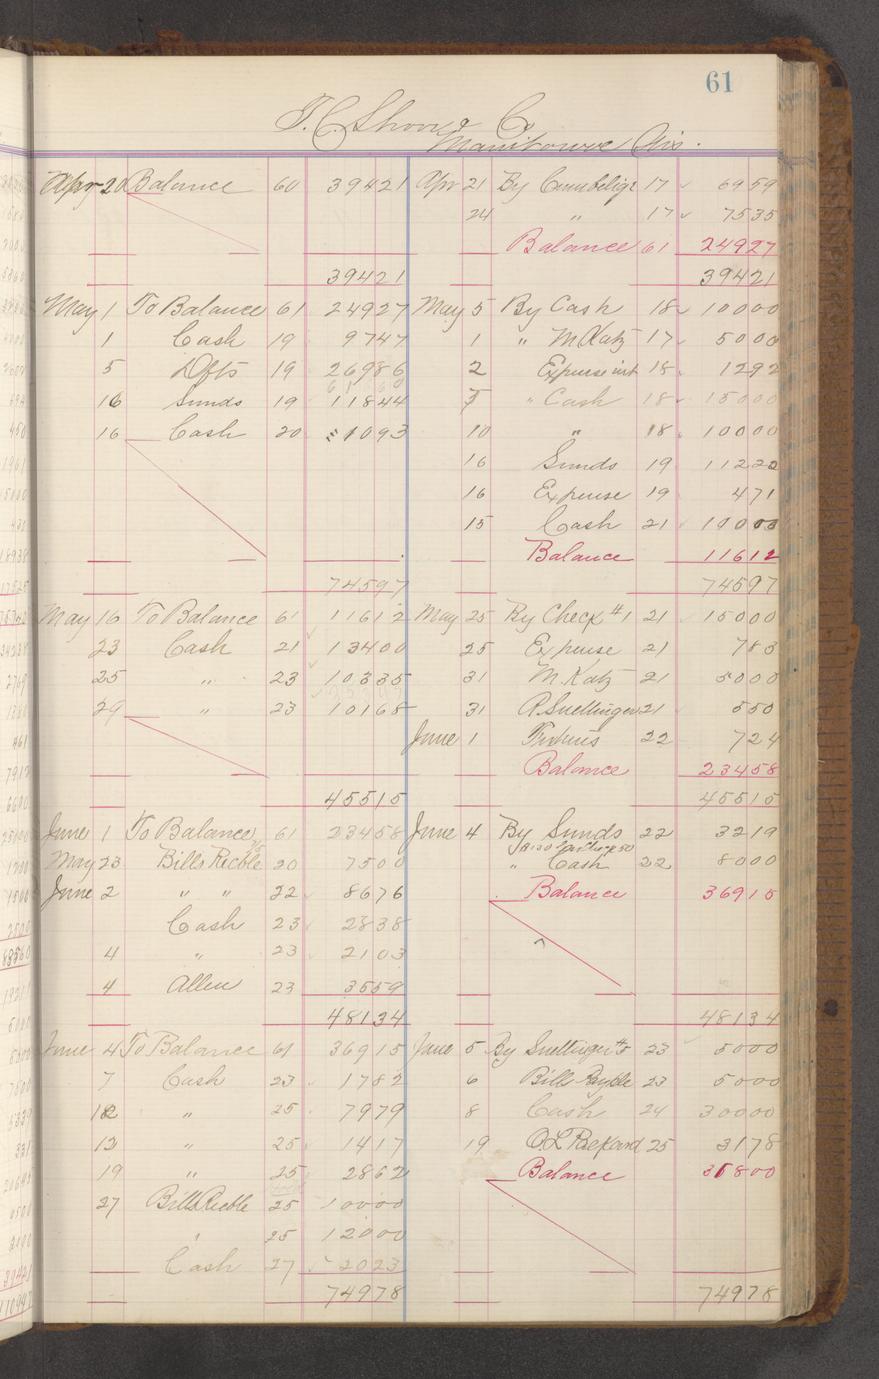 61
T. C. Shove & Co
Manitowoc Wis.
Apr 20 Balance 60 39421 Apr 21 By 17 6959
24 " 17 7535
Balance 61 24927
39421 39421
May 1 To Balance 61 24927 May 5 By Cash 18 10000
1 Cash 19 9747 1 " M Katz 17 5000
5 Dfts 19 26986 2 Expense int 18 1292
16 Sunds 19 11844 5 " Cash 18 15000
16 Cash 20 1093 10 " 18 10000
16 Sunds 19 11222
16 Expense 19 471
15 Cash 21 10000
Balance 11612
74597 74597
May 16 To Balance 61 11612 May 25 By Check #1 21 15000
23 Cash 21 13400 25 Expense 21 783
25 " 23 10335 31 M. Katz 21 5000
29 " 23 10168 31 P. Snellinger 21 550
June 1 22 724
Balance 23458
45515 45515
June 1 To Balance 61 23458 June 4 By Sunds 22 3219
May 23 Bills Recble 20 7500 " Cash 22 8000
June 2 " " 22 8676 Balance 36915
Cash 23 2838
4 " 23 2103
4 Allen 23 3559
48134 48134
June 4 To Balance 61 36915 June 5 By Snellinger #5 23 5000
7 Cash 23 1782 6 Bills Payble 23 5000
12 " 25 7979 8 Cash 24 30000
13 " 25 1417 19 O.L. 25 3178
19 " 25 2862 Balance 31800
27 Bills Recble 25 10000
" 25 12000
Cash 27 2023
74978 74978